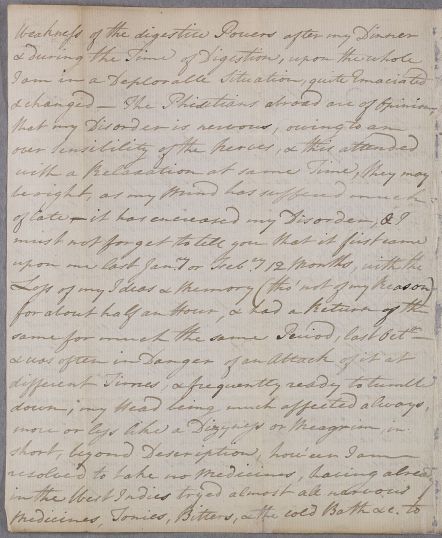 Weakness of the digestive Powers after my Dinner
& During the Time of Digestion, upon the whole
I am in a Deplorable Situation, quite Emaciated
& changed — The Phisitians abroad are of Opinion,
that my Disorder is nervous, owing to an
over sensibility of the Nerves, & this attended
with a Relaxation at same Time, they may
be right, as my Mind has suffered much
of late — it has encreased my Disorder, & I
must not forget to tell you that it first came
upon me last Jany or Feby 12 Months, with the
Loss of my Ideas & Memory (tho' not of my Reason)
for about half an Hour, & had a Return of the
same for much the same Period, last Octr —
& was often in Danger of an Attack of it at
different Times, & frequently ready to tumble
down, my Head being much affected always,
more or less like a Dizzyness or Meagrim, in
short, beyond Description, how'ever I am
resolved to take no Medicines, having already
in the West Indies tryed almost all nervous
Medicines, Tonics, Bitters, & the cold Bath &c. to